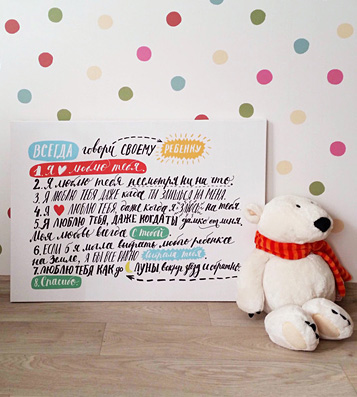 ВСЕГДА говори СВОЕМУ РЕБЕНКУ
1. Я люблю тебя.
2. Я люблю тебя несмотря ни на что.
3. Я люблю тебя даже когда ты злишься на меня.
4. Я люблю тебя даже когда я злюсь на тебя
5. Я люблю тебя, даже когда ты далеко от меня.
Моя любовь всегда с тобой.
6. Если б я могла выбрать любого ребенка
на Земле, я бы все равно выбрала тебя.
7. Люблю тебя как до луны вокруг звёзд и обратно.
8. Спасибо.